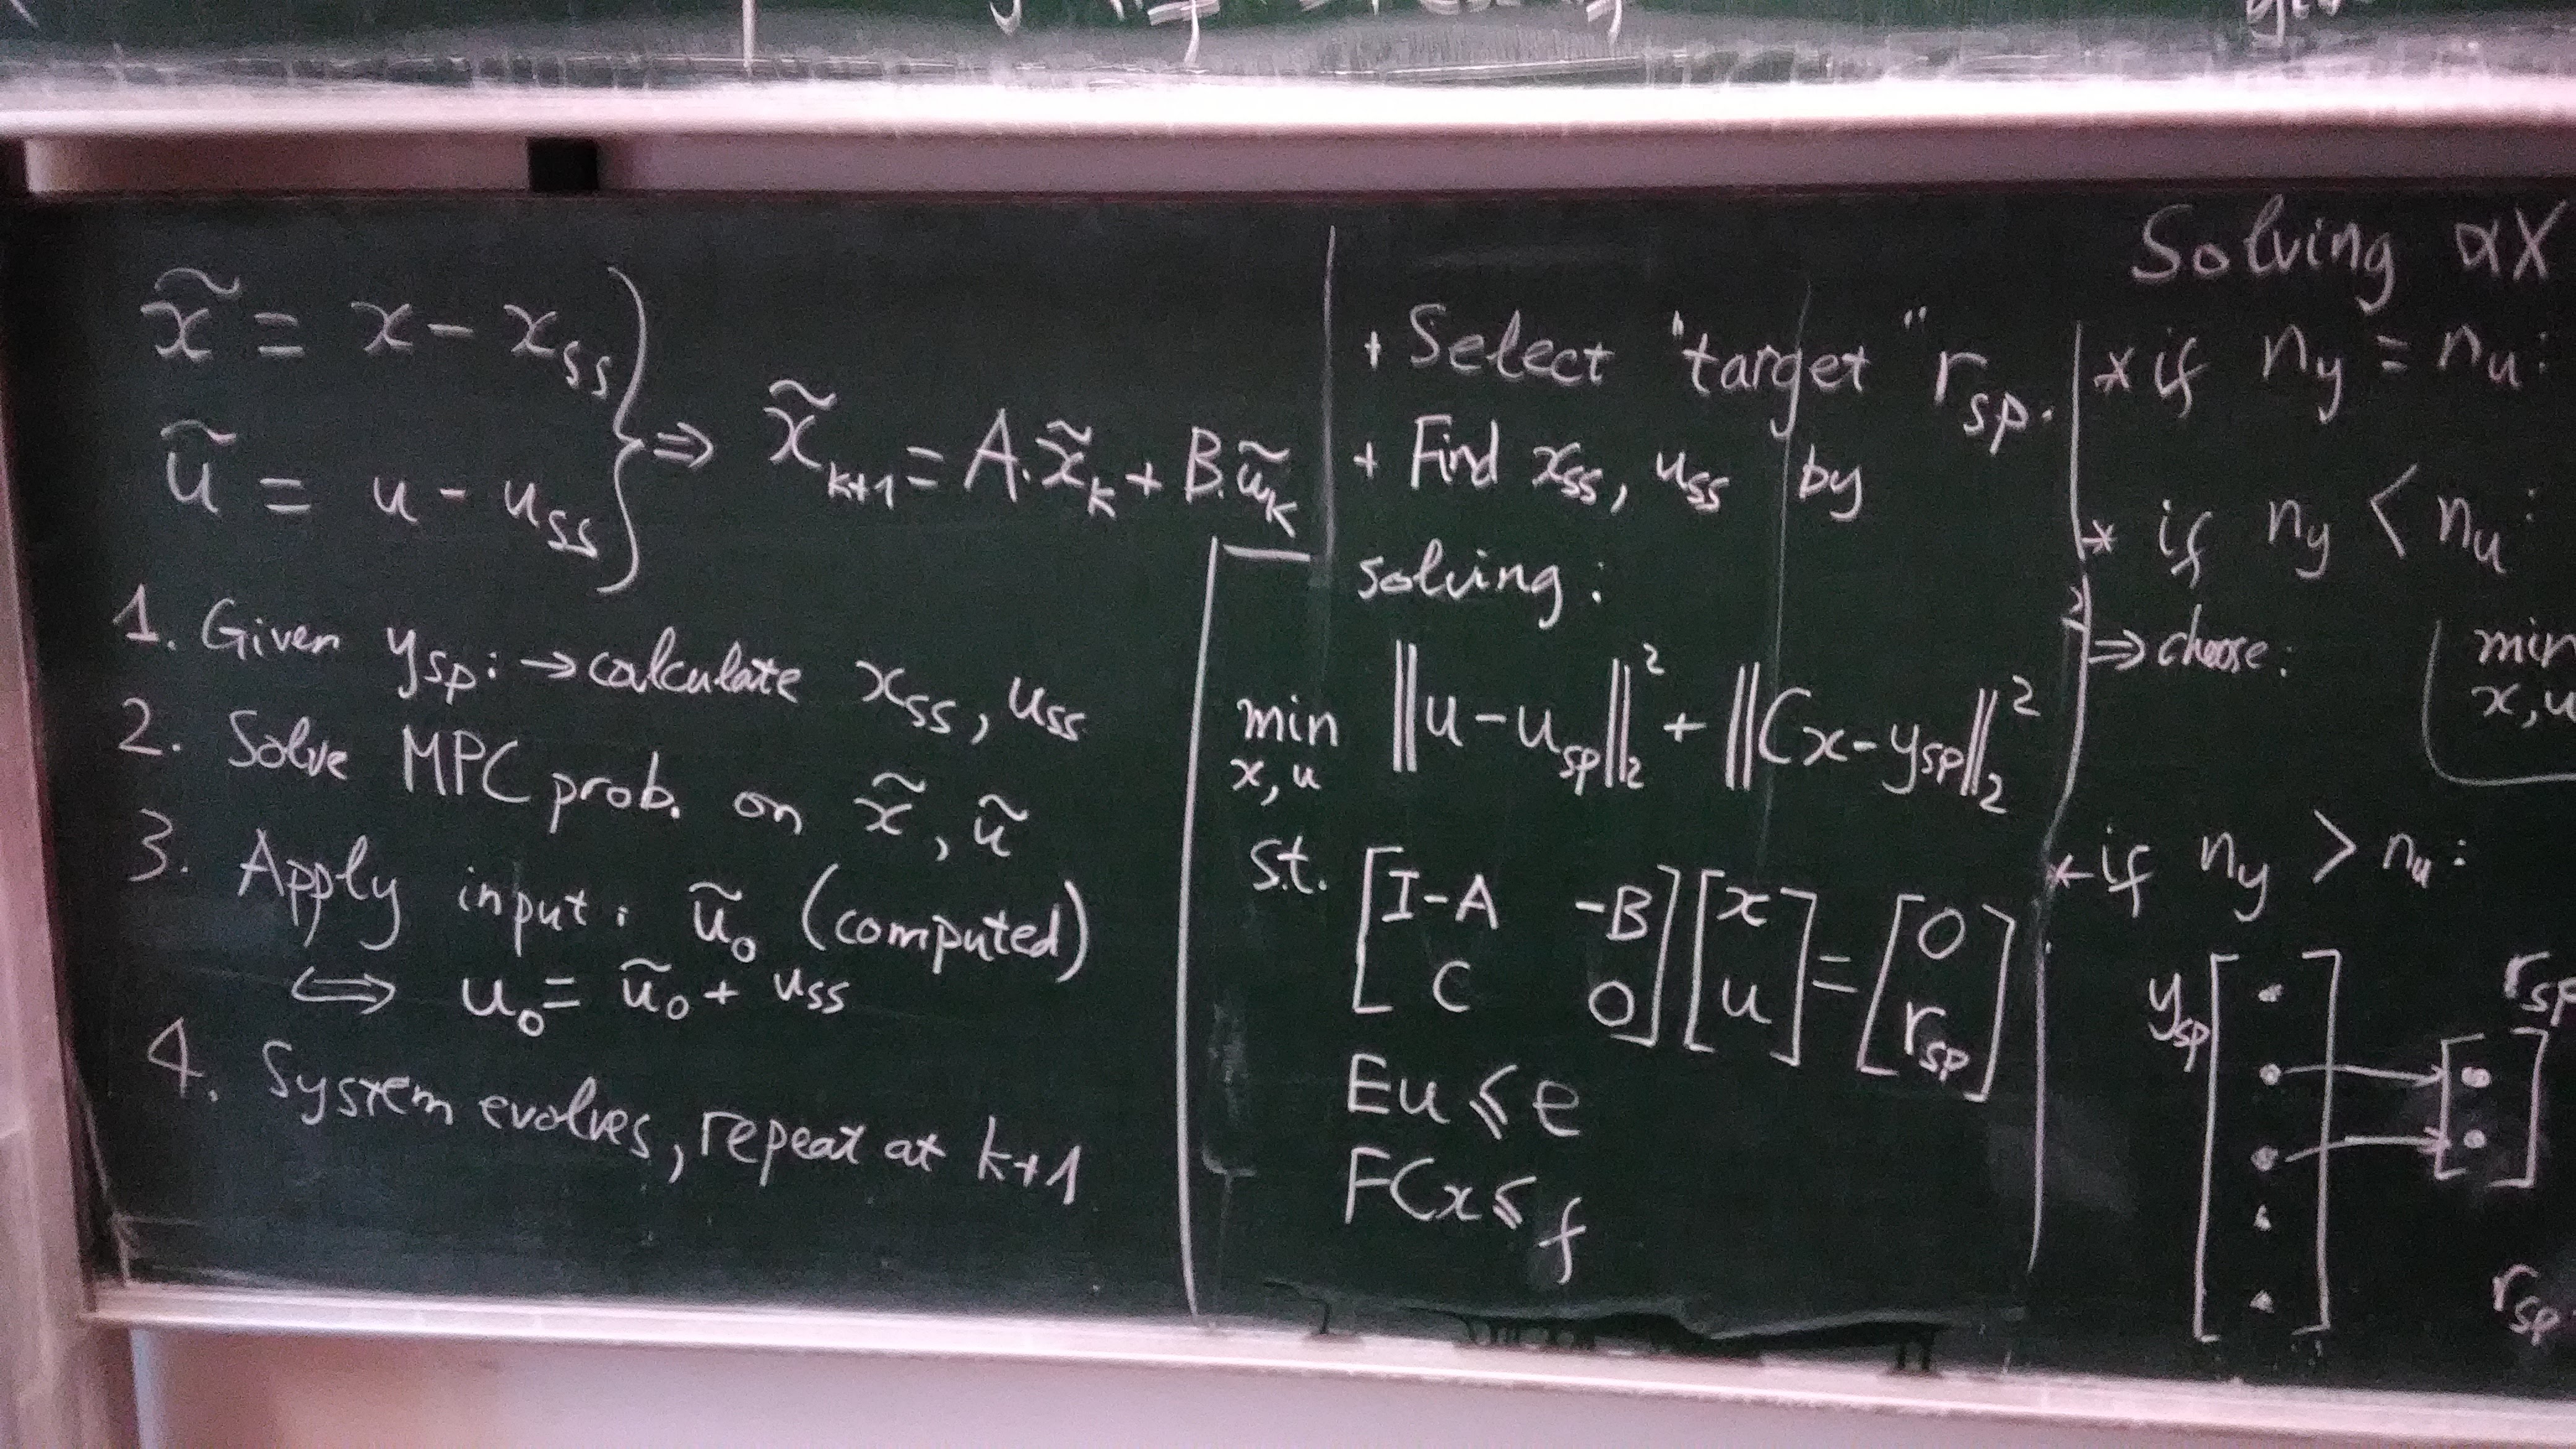 x̃ = x - x_ss
ũ = u - u_ss
⇒ x̃_k+1 = A.x̃_k + B.ũ_k
1. Given y_sp: → calculate x_ss, u_ss
2. Solve MPC prob. on x̃, ũ
3. Apply input: ũ_0 (computed)
⇔ u_0 = ũ_0 + u_ss
4. System evolves, repeat at k+1
+ Select "target" r_sp.
+ Find x_ss, u_ss by
solving:
min ‖u - u_sp‖_2^2 + ‖Cx - y_sp‖_2^2
x, u
s.t. [I-A -B; C 0] [x; u] = [0; r_sp]
Eu ⩽ e
FCx ⩽ f
Solving
* if n_y = n_u:
* if n_y < n_u:
⇒ choose: min
x, u
* if n_y > n_u:
y_sp
r_sp
r_sp